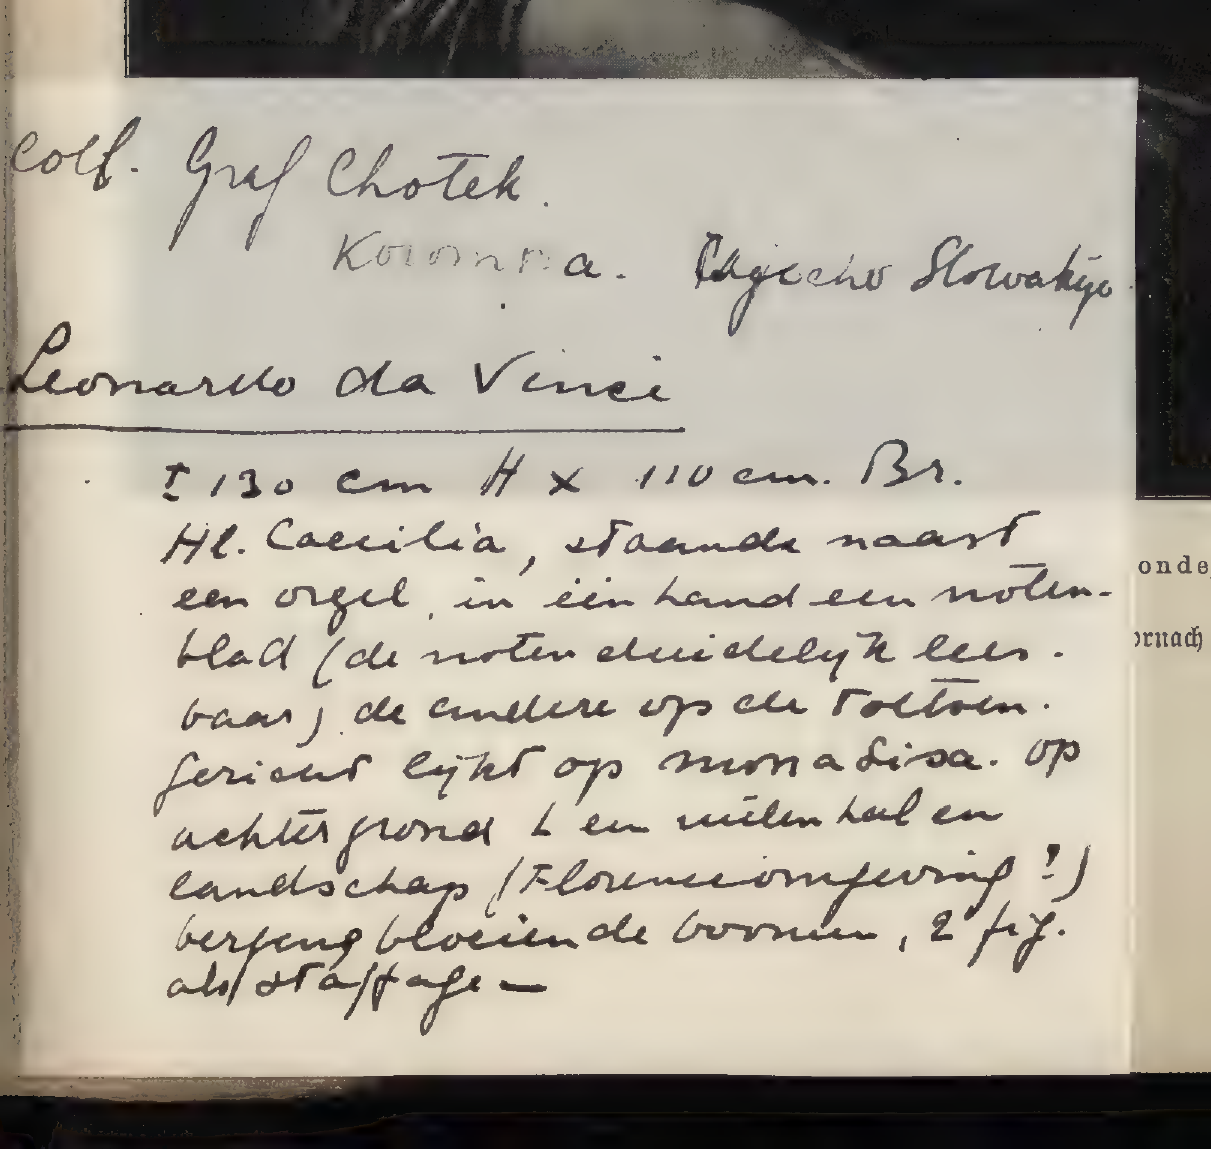 Coll. Graf Chotek.
a. Slowakije
Leonardo da Vinci
± 130 cm H x 110 cm. Br.
Hl. Caecilia, staande naast
een orgel, in één hand een noten-
blad (de noten duidelijk lees-
baar) de andere op de toetsen.
Gezicht lijkt op mona Lisa. Op
achtergrond L en zuilenhal en
landschap (Florence omgeving!)
bergen bloeiende boomen, 2 fig.
als staffage —
onde
ornach